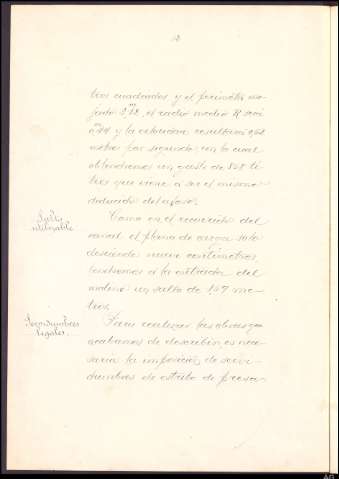 12
tros cuadrados y el perímetro mo-
jado 2,m28, el radio medio R será
0,m44 y la velocidad resultará 0,62
metros por segundo con lo cual
obtendremos un gasto de 828 li-
tros que viene a ser el mismo
deducido del aforo.
Salto
utilizable.
Como en el recorrido del
canal el plano de carga solo
desciende nueve centímetros,
tendremos a la entrada del
molino un salto de 1,57 me-
tros.
Servidumbres
legales.
Para realizar las obras que
acabamos de describir, es nece-
saria la imposición de servi-
dumbres de estribo de presa